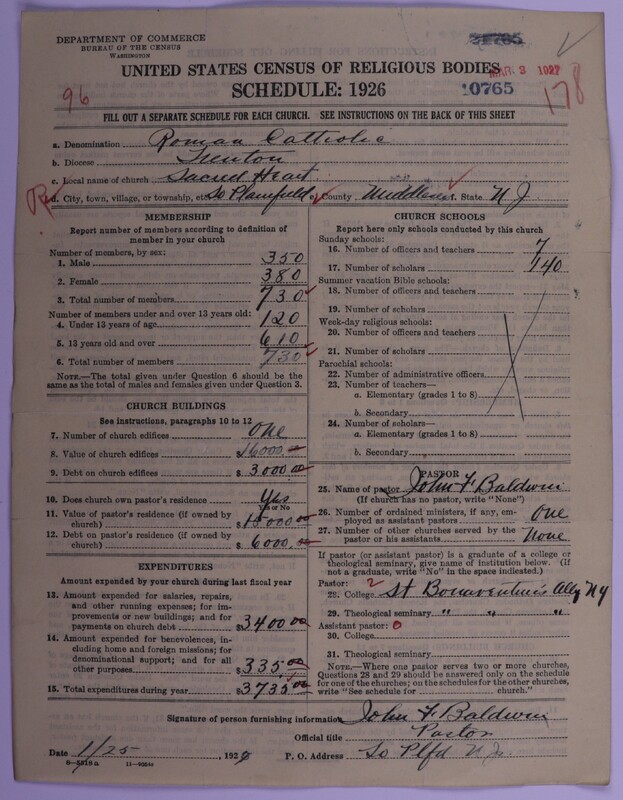 DEPARTMENT OF COMMERCE
BUREAU OF THE CENSUS
WASHINGTON
MAR 3 1927
UNITED STATES CENSUS OF RELIGIOUS BODIES
96
SCHEDULE: 1926
10765
178
FILL OUT A SEPARATE SCHEDULE FOR EACH CHURCH. SEE INSTRUCTIONS ON THE BACK OF THIS SHEET
a. Denomination Roman Catholic
b. Diocese Trenton
c. Local name of church Sacred Heart
d. City, town, village, or township, etc. So Plainfield County Middlesex State N J
MEMBERSHIP
Report number of members according to definition of
member in your church
Number of members, by sex:
1. Male 350
2. Female 380
3. Total number of members 730
Number of members under and over 13 years old:
4. Under 13 years of age 120
5. 13 years old and over 610
6. Total number of members 730
NOTE.—The total given under Question 6 should be the
same as the total of males and females given under Question 3.
CHURCH BUILDINGS
See instructions, paragraphs 10 to 12
7. Number of church edifices One
8. Value of church edifices $16000
9. Debt on church edifices $3000.00
10. Does church own pastor's residence Yes
Yes or No
11. Value of pastor's residence (if owned by
church) $15000.00
12. Debt on pastor's residence (if owned by
church) $6000.
EXPENDITURES
Amount expended by your church during last fiscal year
13. Amount expended for salaries, repairs,
and other running expenses; for im-
provements or new buildings; and for
payments on church debt $3400.00
14. Amount expended for benevolences, in-
cluding home and foreign missions; for
denominational support; and for all
other purposes $335.00
15. Total expenditures during year $3735.00
CHURCH SCHOOLS
Report here only schools conducted by this church
Sunday schools:
16. Number of officers and teachers 7
17. Number of scholars 140
Summer vacation Bible schools:
18. Number of officers and teachers
19. Number of scholars
Week-day religious schools:
20. Number of officers and teachers
21. Number of scholars
Parochial schools:
22. Number of administrative officers
23. Number of teachers—
a. Elementary (grades 1 to 8)
b. Secondary
24. Number of scholars—
a. Elementary (grades 1 to 8)
b. Secondary
PASTOR
25. Name of pastor John F Baldwin
(If church has no pastor, write "None")
26. Number of ordained ministers, if any, em-
ployed as assistant pastors One
27. Number of other churches served by the
pastor or his assistants None
If pastor (or assistant pastor) is a graduate of a college or
theological seminary, give name of institution below. (If
not a graduate, write "No" in the space indicated.)
Pastor: 2
28. College St Bonaventures Alleg N Y
29. Theological seminary " " "
Assistant pastor: 0
30. College
31. Theological seminary
NOTE.—Where one pastor serves two or more churches,
Questions 28 and 29 should be answered only on the schedule
for one of the churches; on the schedules for the other churches,
write "See schedule for church."
Signature of person furnishing information John F Baldwin
Official title Pastor
Date 1/25, 192
P. O. Address So Plfd N J
8—5518a 11—9564